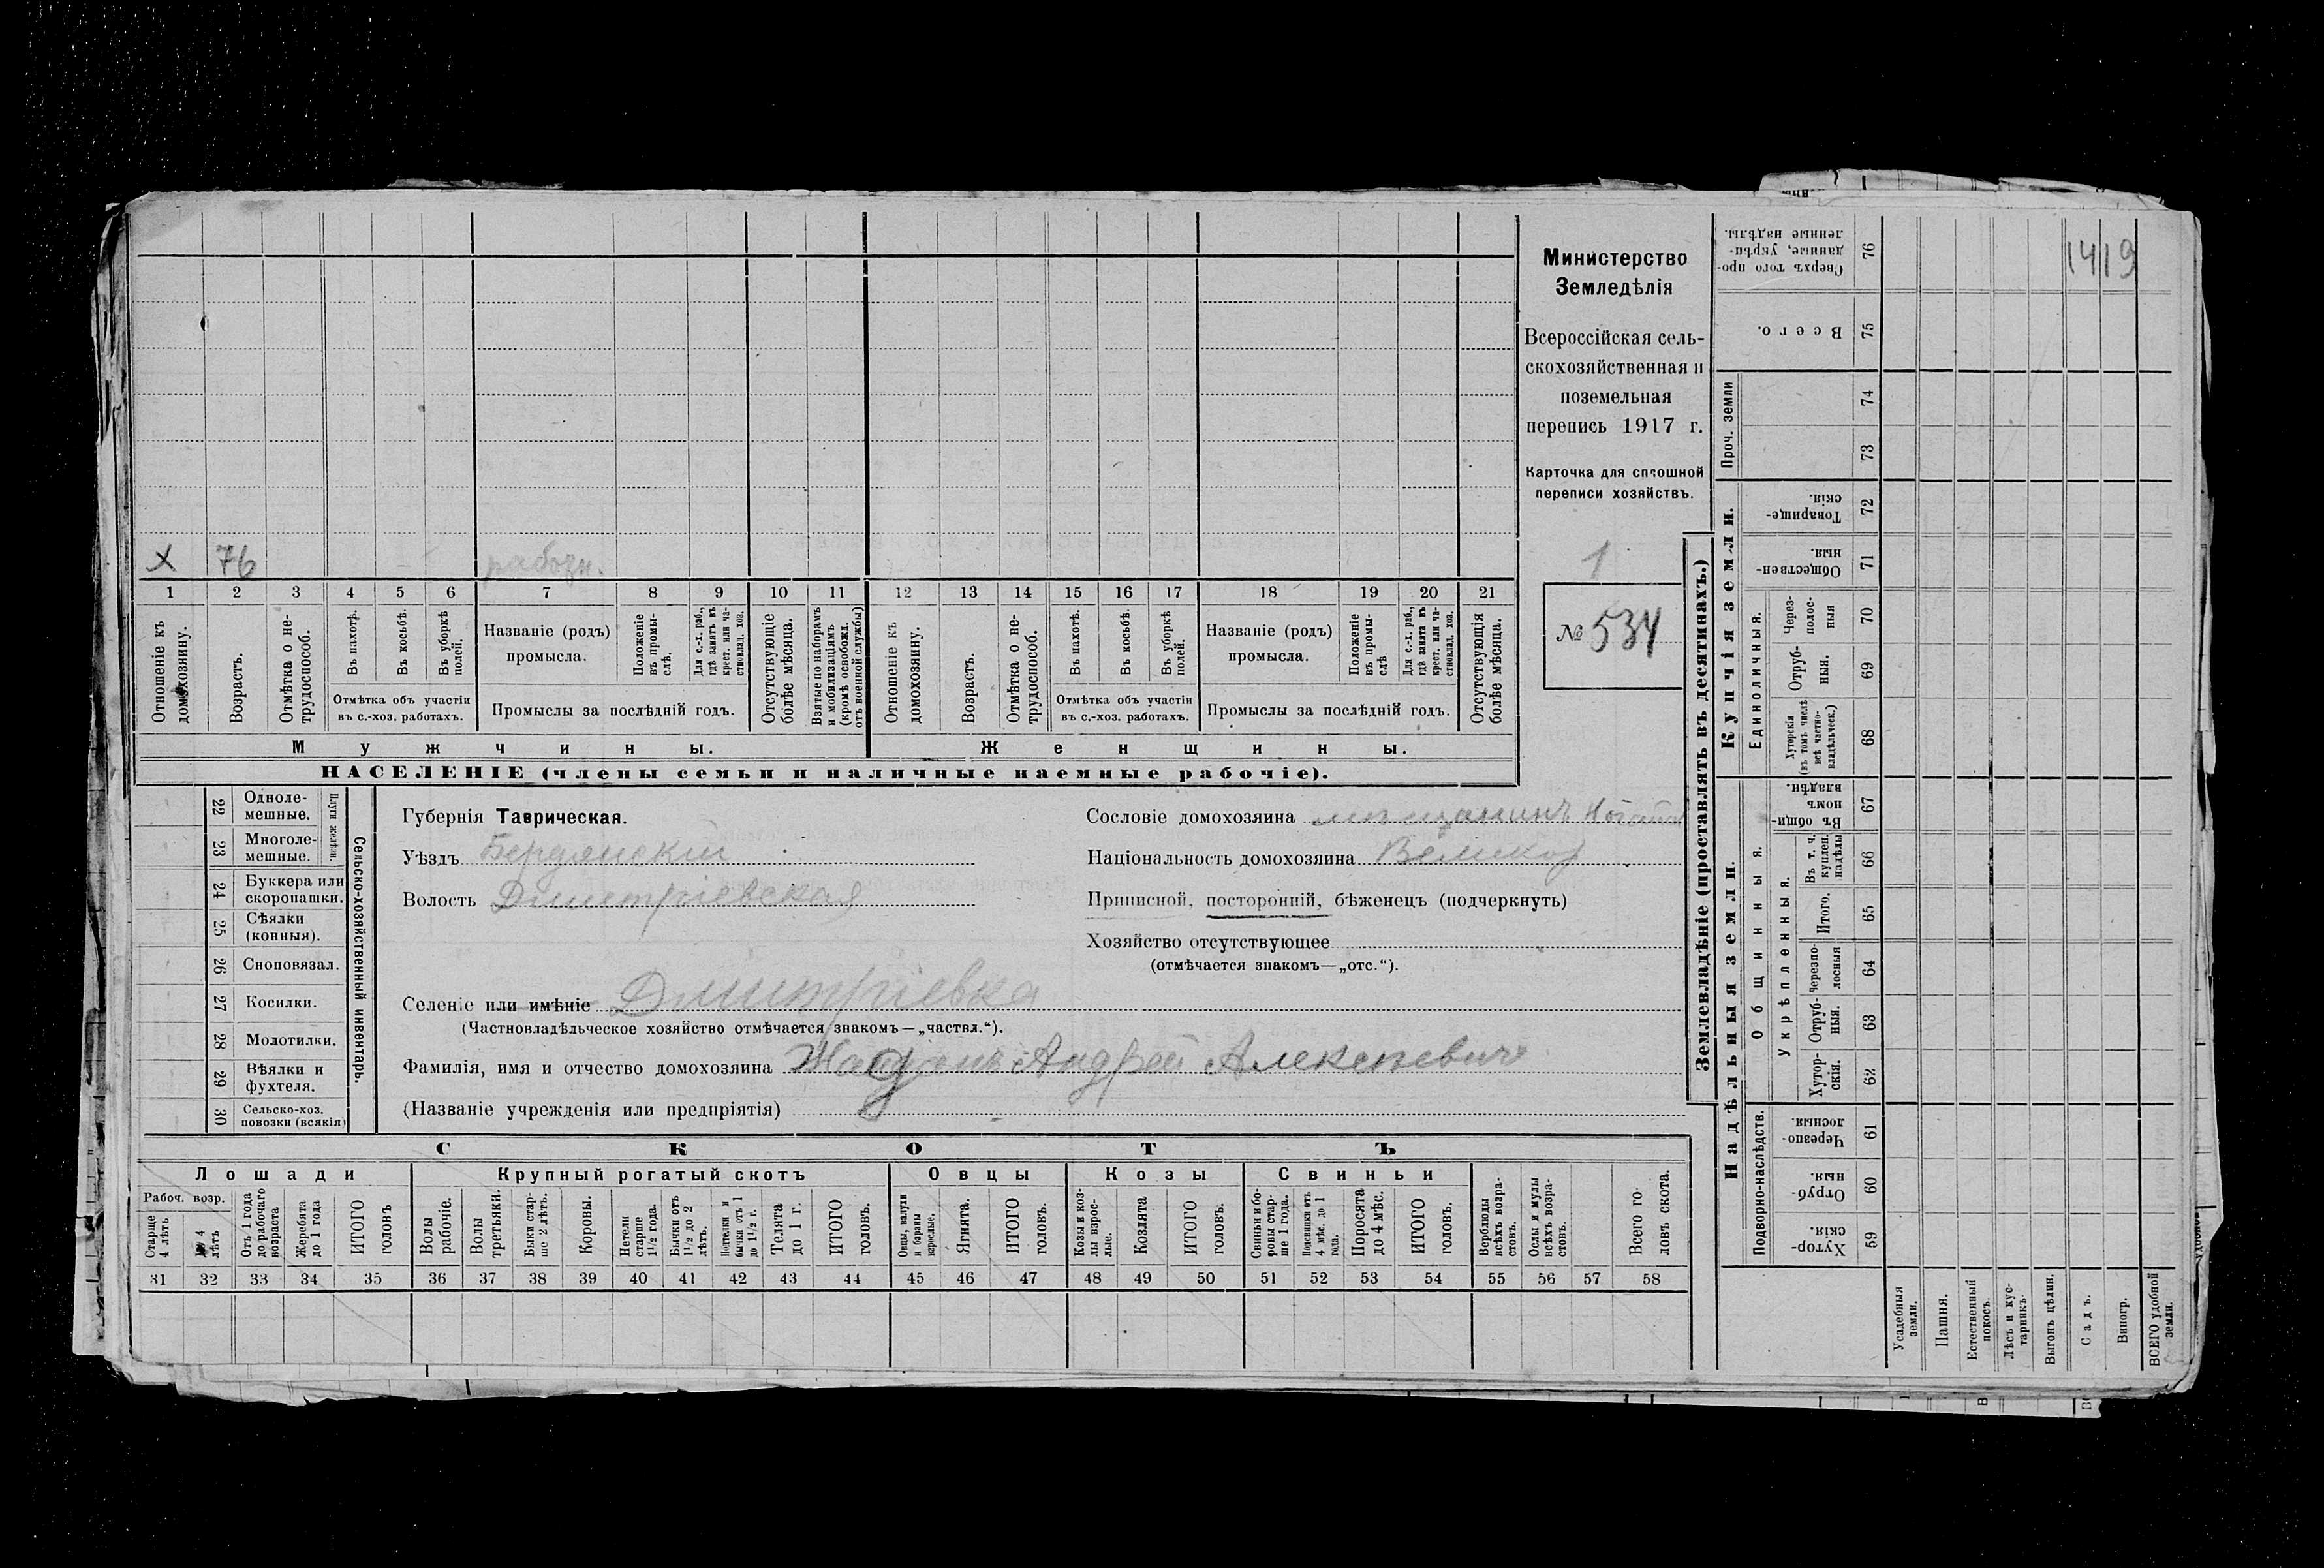 Министерство
Земледѣлія
Всероссійская сель-
скохозяйственная и
поземельная
перепись 1917 г.
Карточка для сплошной
переписи хозяйствъ.
1
№ 534
х 76 рабочн.
1 2 3 4 5 6 7 8 9 10 11 12 13 14 15 16 17 18 19 20 21
Отношеніе къ домохозяину.
Возрастъ.
Отмѣтка о не-трудоспособ.
Въ пахотѣ.
Въ косьбѣ.
Въ уборкѣ полей.
Отмѣтка объ участіи
въ с.-хоз. работахъ.
Названіе (родъ)
промысла.
Положеніе въ промы-слѣ.
Для с.-х. раб., гдѣ занятъ въ крест. или ча-стновлад. хоз.
Промыслы за послѣдній годъ.
Отсутствующіе болѣе мѣсяца.
Взятые по наборамъ и мобилизаціямъ (кромѣ освобожд. отъ военной службы)
Отношеніе къ домохозяину.
Возрастъ.
Отмѣтка о не-трудоспособ.
Въ пахотѣ.
Въ косьбѣ.
Въ уборкѣ полей.
Отмѣтка объ участіи
въ с.-хоз. работахъ.
Названіе (родъ)
промысла.
Положеніе въ промы-слѣ
Для с.-х. раб., гдѣ занята въ крест. или ча-стновлад. хоз.
Промыслы за послѣдній годъ.
Отсутствующія болѣе мѣсяца.
Мужчины.
Женщины.
НАСЕЛЕНІЕ (члены семьи и наличные наемные рабочіе).
22 Одноле-мешные.
23 Многоле-мешные.
Плуги желѣзн.
24 Буккера или скоропашки.
25 Сѣялки (конныя).
26 Сноповязал.
27 Косилки.
28 Молотилки.
29 Вѣялки и фухтеля.
30 Сельско-хоз. повозки (всякія)
Сельско-хозяйственный инвентарь.
Губернія Таврическая.
Уѣздъ Бердянскій
Волость Дмитріевская
Селеніе или имѣніе Дмитріевка
(Частновладѣльческое хозяйство отмѣчается знакомъ—„частвл.“).
Фамилія, имя и отчество домохозяина Жадань Андрей Алексеевичъ
(Названіе учрежденія или предпріятія)
Сословіе домохозяина мѣщанинъ
Національность домохозяина Великор
Приписной, посторонній, бѣженецъ (подчеркнуть)
Хозяйство отсутствующее
(отмѣчается знакомъ—„отс.“).
СКОТЪ
Лошади Крупный рогатый скотъ Овцы Козы Свиньи
Рабоч. возр.
Старше 4 лѣтъ
До 4 лѣтъ
Отъ 1 года до рабочаго возраста
Жеребята до 1 года
ИТОГО головъ
Волы рабочіе.
Волы третьяки.
Быки стар-ше 2 лѣтъ.
Коровы.
Нетели старше 1½ года.
Бычки отъ 1½ до 2 лѣтъ.
Нетелки и бычки отъ 1 до 1½ г.
Телята до 1 г.
ИТОГО головъ.
Овцы, валухи и бараны взрослые.
Ягнята.
ИТОГО головъ.
Козы и коз-лы взрос-лые.
Козлята
ИТОГО головъ.
Свиньи и бо-ровы стар-ше 1 года.
Подсвинки отъ 4 мѣс. до 1 года.
Поросята до 4 мѣс.
ИТОГО головъ.
Верблюды всѣхъ возра-стовъ.
Ослы и мулы всѣхъ возра-стовъ.
Всего го-ловъ скота.
31 32 33 34 35 36 37 38 39 40 41 42 43 44 45 46 47 48 49 50 51 52 53 54 55 56 57 58
Землевладѣніе (проставлять въ десятинахъ.)
Надѣльныя земли.
Купчія земли.
Проч. земли
Подворно-наслѣдств.
Общинныя.
Укрѣпленныя.
Единоличныя.
Сверхъ того про-данные, укрѣп-ленные надѣлы. 76
Всего. 75
74
73
Товарище-скія. 72
Обществен-ныя. 71
Через-полос-ныя 70
Отруб-ныя. 69
Хуторскія (въ томъ числѣ всѣ частно-владѣльческ.) 68
Въ общи-номъ владѣн. 67
Въ т. ч. куплен. надѣлы 66
Итого. 65
Черезпо-лосныя 64
Отруб-ныя. 63
Хутор-скія. 62
Черезпо-лосныя. 61
Отруб-ныя. 60
Хутор-скія. 59
Усадебныя земли.
Пашня.
Естественный покосъ.
Лѣсъ и кус-тарникъ
Выгонъ цѣлин.
Садъ.
Виногр.
ВСЕГО удобной земли.
1419